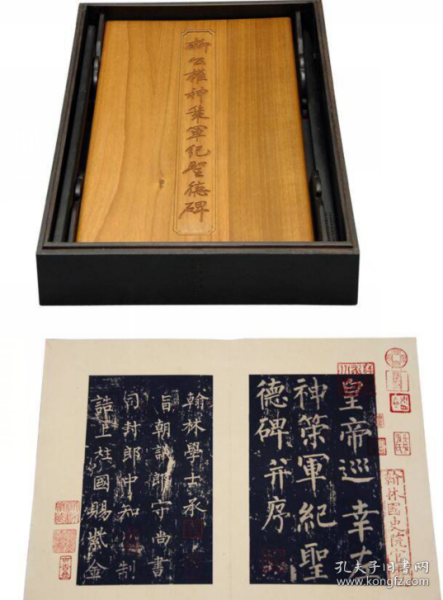 柳公權神策軍紀聖德碑
皇帝巡幸左
神策軍紀聖
德碑并序
翰林國史院官
翰林學士承
旨朝議郎守尚書
司封郎中知制
誥上柱國賜紫金
孔夫子旧书网
www.kongfz.com